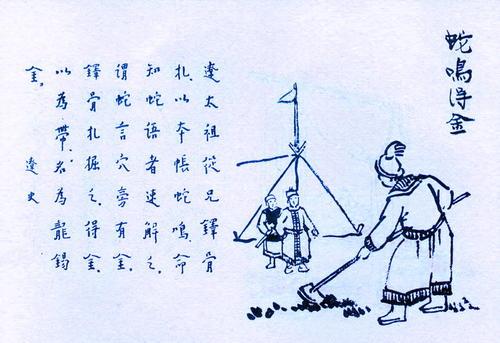 蛇鳴得金
遼太祖從兄鐸骨
扎、以本帳蛇鳴、命
知蛇語者速解之、
謂蛇言穴旁有金、
鐸骨扎掘之、得金、
以為帶、名為龍錫
金。
遼史